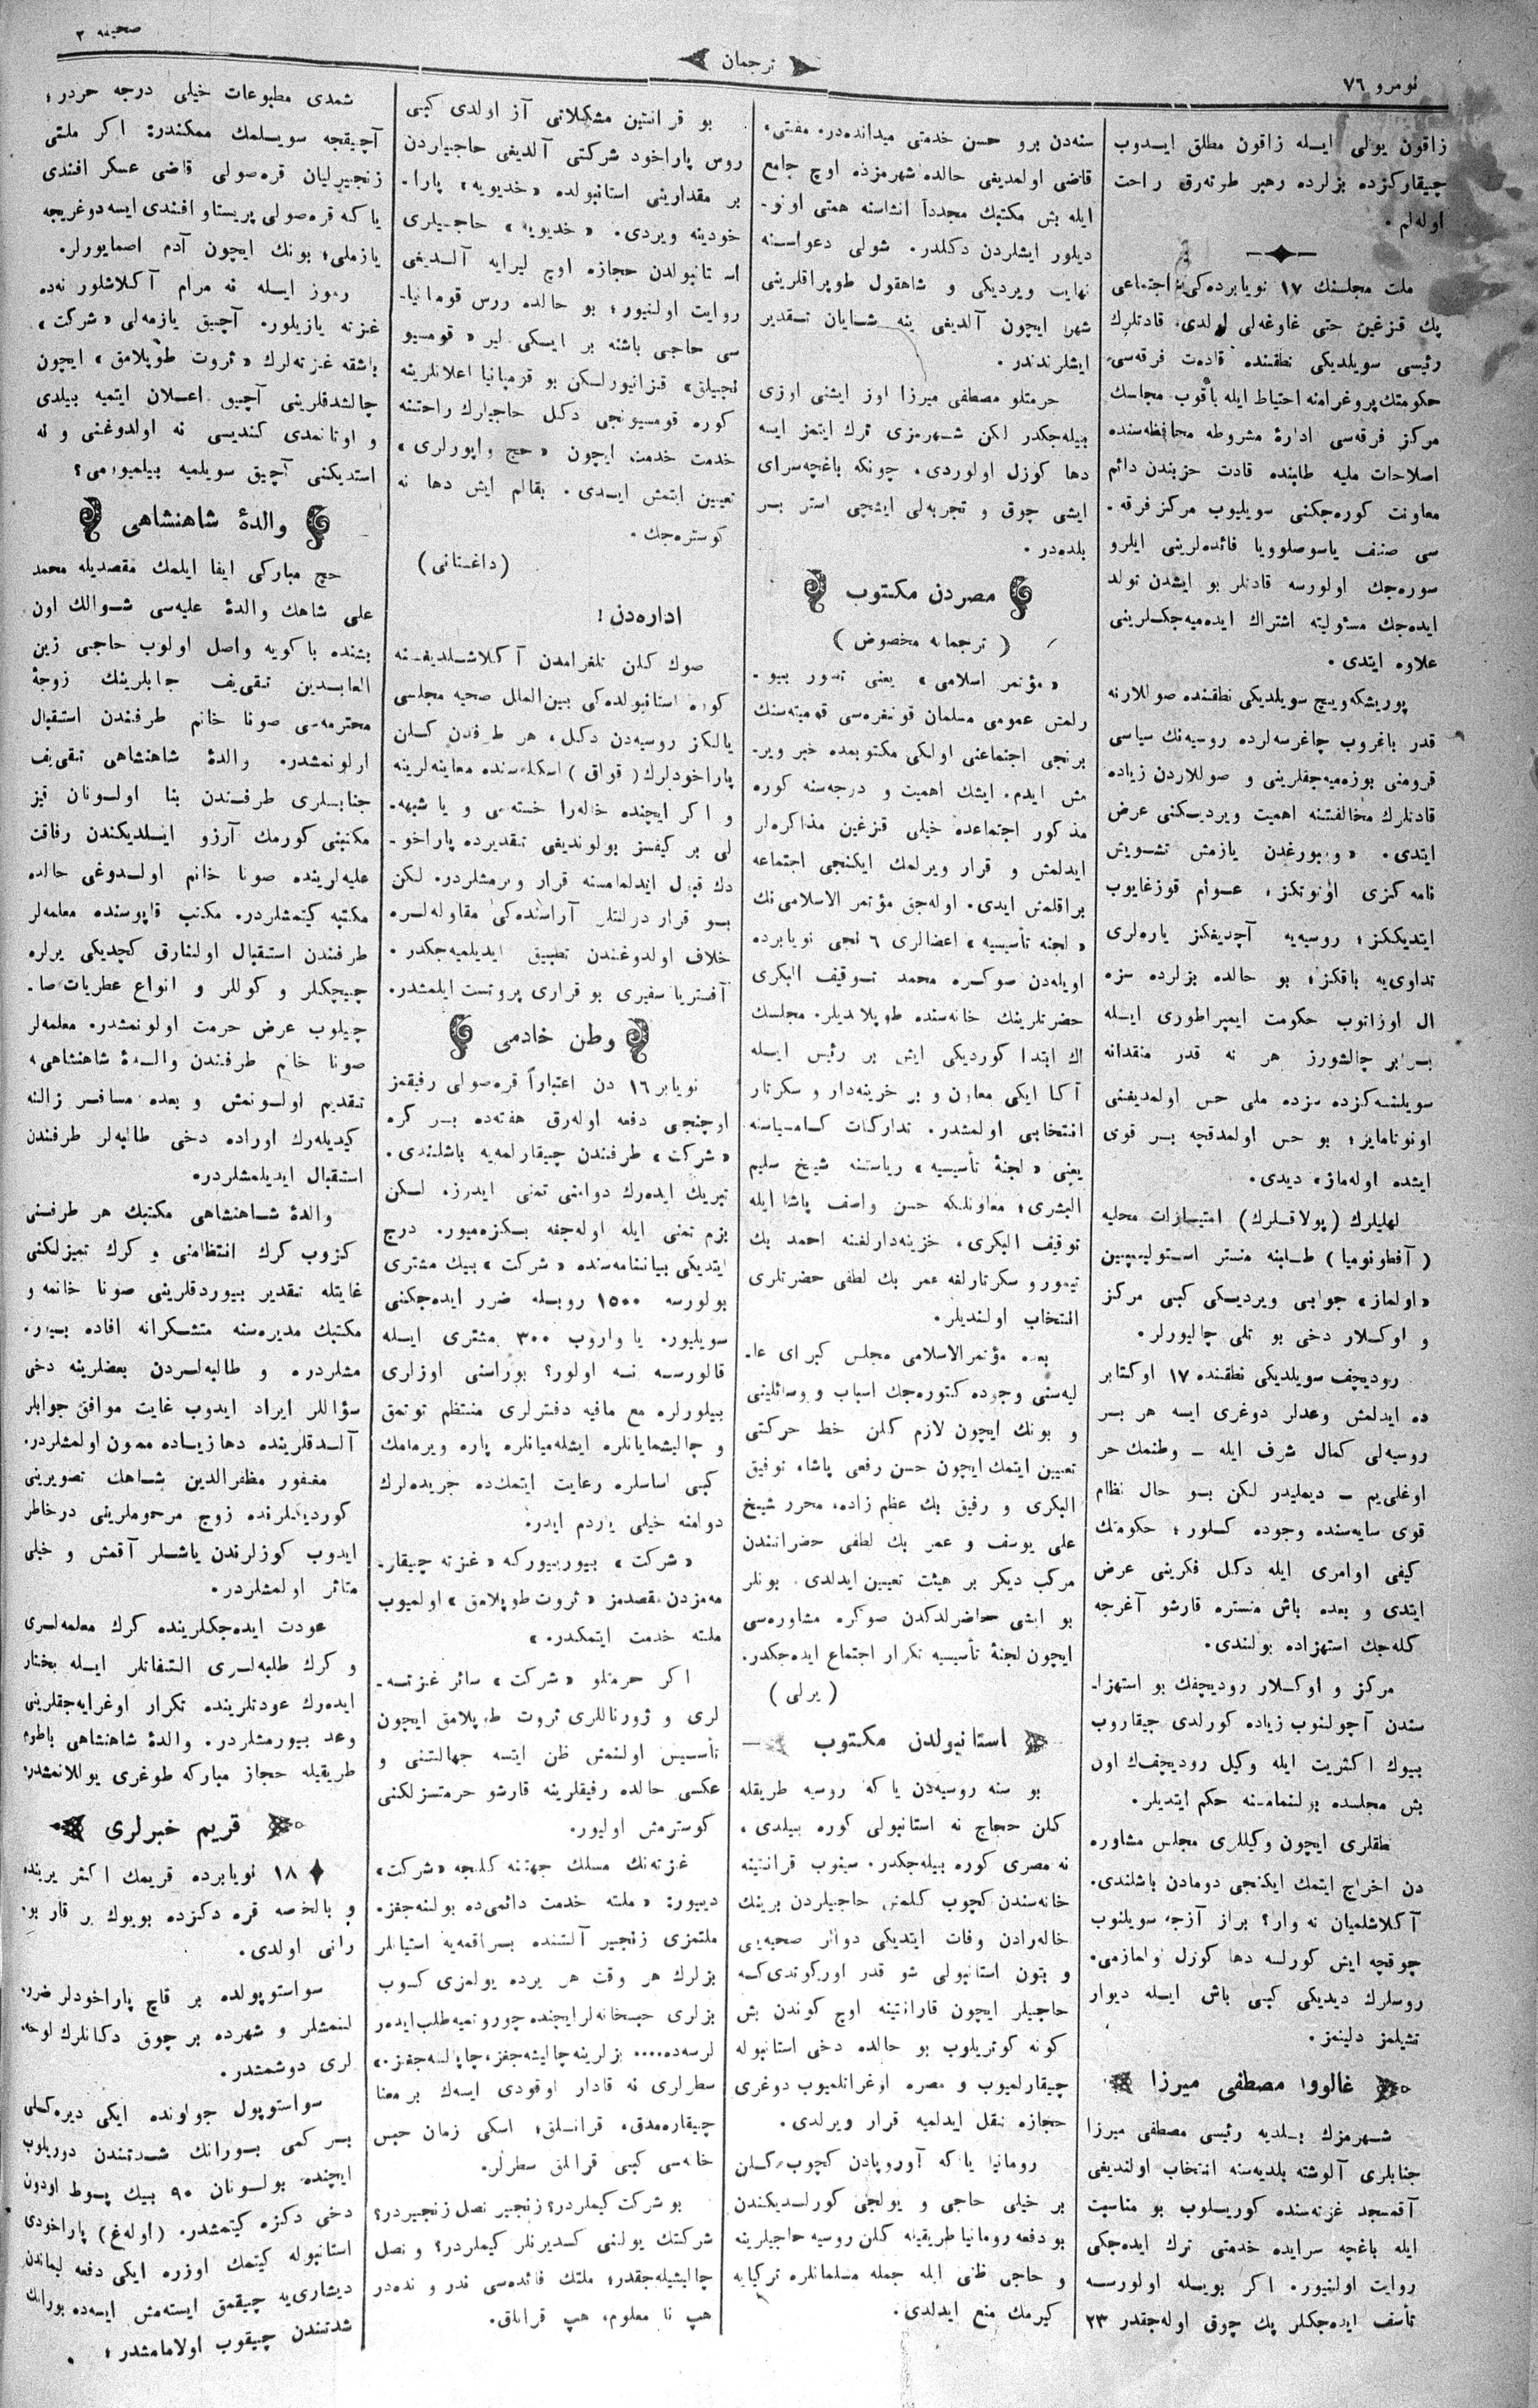 نومرو ٧٦
ترجمان
صحیفه ٣
زاقون یولی ایله زاقون مطلق ایدوب
چیقارکزده بزلرده رهبر طوته‌رق راحت
اوله‌لم .
ملت مجلسنك ١٧ نویابرده‌کی اجتماعی
پك قزغین حتی غاوغه‌لی اولدی. قادتلرك
رئیسی سویلدیکی نطقنده قادت فرقه‌سی
حکومتك پروغرامنه احتیاط ایله باقوب مجلسك
مرکز فرقه‌سی ادارۀ مشروطه محافظه‌سنده
اصلاحات ملیه طلبنده قادت حزبندن دائم
معاونت کوره‌جکنی سویلیوب مرکز فرقه ـ
سی صنف یاسوصلوویا فائده‌لرینی ایلرو
سوره‌جك اولورسه قادتلر بو ایشدن تولد
ایده‌جك مسئولیته اشتراك ایده‌میه‌جکلرینی
علاوه ایتدی .
پوریشکه‌ویچ سویلدیکی نطقنده صوللارنه
قدر باغروب چاغرسه‌لرده روسیه‌نك سیاسی
قرومنی بوزه‌میه‌جقلرینی و صوللاردن زیاده
قادتلرك مخالفتنه اهمیت ویردیکنی عرض
ایتدی. « ویبورغدن یازمش تشویش
نامه کزی اونوتکز ؛ عوام قوزغایوب
ایتدیککز ؛ روسیه‌یه آچدیغکز یاره‌لری
تداوی‌یه باقکز ؛ بو حالده بزلرده سزه
ال اوزاتوب حکومت ایمپراطوری ایله
برابر چالشورز هر نه قدر منقدانه
سویلنسه‌کزده سزده ملی حس اولمدیغنی
اونوتامایز ؛ بو حس اولمدقجه بر قوی
ایشده اوله‌ماز» دیدی.
لهلیلرك (پولاقلرك) امتیازات محلیه
(آفطونومیا) طلبنه منستر استولیپین
«اولماز» جوابی ویردیکی کبی مرکز
و اوکلار دخی بو تلی چالیورلر.
رودیچف سویلدیکی نطقنده ١٧ اوکتابر
ده ایدلمش وعدلر دوغری ایسه هر بر
روسیه‌لی کمال شرف ایله ـ وطنمك حر
اوغلی‌یم ـ دیملیدر لکن بو حال نظام
قوی سایه‌سنده وجوده کلور ؛ حکومتك
کیفی اوامری ایله دکل فکرینی عرض
ایتدی و بعده باش منستره قارشو آغرجه
کله‌جك استهزاده بولندی.
مرکز و اوکلار رودیچفك بو استهزا-
سندن آچولنوب زیاده کورلدی چیقاروب
بیوك اکثریت ایله وکیل رودیچف‌ك اون
بش مجلسده بولنمامسنه حکم ایتدیلر.
نطقلری ایچون وکیللری مجلس مشاوره
دن اخراج ایتمك ایکنجی دومادن باشلندی.
آکلاشلمیان نه وار؟ براز آزجه سویلنوب
چوقچه ایش کورلسه دها کوزل اولمازمی.
روسلرك دیدیکی کبی باش ایله دیوار
تشیلمز دلینمز.
غالووا مصطفی میرزا
شهرمزك بلدیه رئیسی مصطفی میرزا
جنابلری آلوشته بلدیه‌سنه انتخاب اولندیغی
آقمسجد غزته‌سنده کوریلوب بو مناسبت
ایله باغچه سرایده خدمتی ترك ایده‌جکی
روایت اولنیور. اکر بویسله اولورسه
تأسف ایده‌جکلر پك چوق اوله‌جقدر ٢٣
سنه‌دن برو حسن خدمتی میدانده‌در. مفتی،
قاضی اولمدیغی حالده شهرمزده اوچ جامع
ایله بش مکتبك مجدداً انشاسنه همتی اونو-
دیلور ایشلردن دکلدر. شولی دعواسنه
نهایت ویردیکی و شاهقول طوپراقلرینی
شهر ایچون آلدیغی ینه شایان تقدیر
ایشلرندندر.
حرمتلو مصطفی میرزا اوز ایشنی اوزی
بیله‌جکدر لکن شهرمزی ترك ایتمز ایسه
دها کوزل اولوردی. چونکه باغچه‌سرای
ایشی چوق و تجربه‌لی ایشچی استر بر
بلده‌در.
مصردن مکتوب
( ترجمانه مخصوص )
« مؤتمر اسلامی » یعنی تصور بیو-
رلمش عمومی مسلمان قونفره‌سی قومیته‌سنك
برنجی اجتماعنی اولکی مکتوبمده خبر ویر-
مش ایدم. ایشك اهمیت و درجه‌سنه کوره
مذکور اجتماعده خیلی قزغین مذاکره‌لر
ایدلمش و قرار ویرلمك ایکنجی اجتماعه
براقلمش ایدی. اوله‌جق مؤتمر الاسلامی‌نك
« لجنه تأسیسیه » اعضالری ٦ نجی نویابرده
اویله‌دن صوکره محمد توقیف البکری
حضرتلرینك خانه‌سنده طوپلادیلر. مجلسك
اك ابتدا کوردیکی ایش بر رئیس ایله
آکا ایکی معاون و بر خزینه‌دار و سکرتار
انتخابی اولمشدر. تدارکات کامیاسنه
یعنی « لجنۀ تأسیسیه » ریاستنه شیخ سلیم
البشری ؛ معاونلکه حسن واصف پاشا ایله
توقیف البکری، خزینه‌دارلغنه احمد بك
تیمور و سکرتارلغه عمر بك لطفی حضرتلری
انتخاب اولندیلر.
بعده مؤتمرالاسلامی مجلس کبرای عا-
لیه‌سنی وجوده کتوره‌جك اسباب و وسائلینی
و بونك ایچون لازم کلن خط حرکتی
تعیین ایتمك ایچون حسن رفعی پاشا، توفیق
البکری و رفیق بك عظم زاده، محرر شیخ
علی یوسف و عمر بك لطفی حضراتندن
مرکب دیکر بر هیئت تعیین ایدلدی. بونلر
بو ایشی حاضرلدکدن صوکره مشاوره‌سی
ایچون لجنۀ تأسیسیه تکرار اجتماع ایده‌جکدر.
( یرلی )
استانبولدن مکتوب
بو سنه روسیه‌دن یاکه روسیه طریقله
کلن حجاج نه استانبولی کوره بیلدی ،
نه مصری کوره بیله‌جکدر. سینوب قرانتینه
خانه‌سندن کچوب کلمش حاجیلردن برینك
خاله‌رادن وفات ایتدیکی دوائر صحیه‌یی
و بتون استانبولی شو قدر اورکوتدی‌که
حاجیلر ایچون قارانتینه اوچ کوندن بش
کونه کوتریلوب بو حالده دخی استانبوله
چیقارلمیوب و مصره اوغرانلمیوب دوغری
حجازه نقل ایدلمیه قرار ویرلدی.
رومانیا یاکه آوروپادن کچوب کلن
بر خیلی حاجی و یولجی کورلدیکندن
بو دفعه رومانیا طریقیله کلن روسیه حاجیلرینه
و حاجی ظنی ایله جمله مسلمانلره ترکیایه
کیرمك منع ایدلدی.
بو قرانتین مشکلاتی آز اولدی کبی
روس پاراخود شرکتی آلدیغی حاجیاردن
بر مقدارینی استانبولده « خدیویه » پارا-
خودینه ویردی. « خدیویه » حاجیلری
استانبولدن حجازه اوچ لیرایه آلدیغی
روایت اولنیور ؛ بو حالده روس قومپانیا-
سی حاجی باشنه بر ایسکی لیر « قومسیو
نجیلق» قزانیورلکن بو قومپانیا اعلانلرینه
کوره قومسیونجی دکل حاجیلرك راحتنه
خدمت خدمت ایچون « حج واپورلری »
تعیین ایتمش ایدی. بقالم ایش دها نه
کوستره‌جك .
( داغستانی )
اداره‌دن !
صوك کلن تلغرامدن آکلاشلدیغنه
کوره استانبولده‌کی بین‌الملل صحیه مجلسی
یالکز روسیه‌دن دکل، هر طرفدن کلن
پاراخودلرك (قواق) اسکله‌سنده معاینه‌لرینه
و اکر ایچنده خاله‌را خسته‌سی و یا شبهه-
لی بر کیفسز بولوندیغی تقدیرده پاراخو-
دك قبول ایدلمامسنه قرار ویرمشلردر. لکن
بو قرار دولتلر آراسنده‌کی مقاوله‌لره
خلاف اولدوغندن تطبیق ایدیلمیه‌جکدر .
آفستریا سفیری بو قراری پروتست ایلمشدر.
وطن خادمی
نویابر ١٦ دن اعتباراً قره‌صولی رفیقمز
اوچنجی دفعه اوله‌رق هفته‌ده بر کره
« شرکت » طرفندن چیقارلمه‌یه باشلندی.
تبریك ایده‌رك دوامنی تمنی ایدرز. لکن
بزم تمنی ایله اوله‌جغه بکزه‌میور. درج
ایتدیکی بیاننامه‌سنده « شرکت » بیك مشتری
بولورسه ١٥٠٠ روبله ضرر ایده‌جکنی
سویلیور. یا واروب ٣٠٠ مشتری ایله
قالورسه نسه اولور؟ بوراسنی اوزلری
بیلورلره مع مافیه دفترلری منتظم توتمق
و چالیشمایانلره ایشله‌میانلره پاره ویرمامك
کبی اساسلره رعایت ایتمك‌ده جریده‌لرك
دوامنه خیلی یاردم ایدر.
« شرکت » بیوریورکه « غزته چیقار-
مه‌مزدن مقصدمز « ثروت طوپلامق » اولمیوب
ملته خدمت ایتمکدر. »
اکر حرمتلو « شرکت » سائر غزته-
لری و ژورناللری ثروت طوپلامق ایچون
تأسیس اولنمش ظن ایتسه جهالتنی و
عکسی حالده رفیقلرینه قارشو حرمتسزلکنی
کوسترمش اولیور.
غزته‌نك مسلك جهتنه کلنجه «شرکت»
دیبور: « ملته خدمت دائمی‌ده بولنه‌جغز.
ملتمزی زنجیر آلتنده براقمه‌یه استیانلر
بزلرك هر وقت هر یرده یولمزی کسوب
بزلری حبسخانه‌لرایچنده چوروتمیه طلب ایده‌ر
لرسه‌ده.... بزلرینه چالیشه‌جغز، چاپالنه‌جغز.»
سطرلری نه قادار اوقودی ایسه‌ك بر معنا
چیقاره‌مدق، قرانلق؛ اسکی زمان حبس
خانه‌سی کبی قرالق سطرلر.
بو شرکت کیملردر؟ زنجیر نصل زنجیردر؟
شرکتك یولنی کسدیرنلر کیملردر؟ و نصل
چالیشیله‌جقدر؛ ملتك فائده‌سی ندر و نده‌در
هپ نا معلوم، هپ قرانلق.
شمدی مطبوعات خیلی درجه حردر ؛
آچیقجه سویلمك ممکندر: اکر ملتی
زنجیرلیان قره‌صولی قاضی عسکر افندی
یاکه قره‌صولی پریستاو افندی ایسه دوغریجه
یازملی ؛ بونك ایچون آدم اصمایورلر.
رموز ایله نه مرام آکلاشلور نه‌ده
غزته یازیلور. آچیق یازمه‌لی « شرکت »
باشقه غزته‌لرك « ثروت طوپلامق » ایچون
چالشدقلرینی آچیق اعلان ایتمیه بیلدی
و اوتانمدی کندیسی نه اولدوغنی و نه
استدیکنی آچیق سویلمیه بیلمیورمی؟
والدۀ شاهنشاهی
حج مبارکی ایفا ایلمك مقصدیله محمد
علی شاهك والدۀ علیه‌سی شوالك اون
بشنده باکویه واصل اولوب حاجی زین
العابدین تقی‌یف جنابلرینك زوجۀ
محترمه‌سی صونا خانم طرفندن استقبال
اولونمشدر. والدۀ شاهنشاهی تقی‌یف
جنابلری طرفندن بنا اولونان قیز
مکتبنی کورمك آرزو ایلدیکندن رفاقت
علیه‌لرینده صونا خانم اولدوغی حالده
مکتبه کیتمشلردر. مکتب قاپوسنده معلمه‌لر
طرفندن استقبال اولنارق کچدیکی یرلره
چیچکلر و کوللر و انواع عطریات صا-
چیلوب عرض حرمت اولونمشدر. معلمه‌لر
صونا خانم طرفندن والدۀ شاهنشاهی‌ه
تقدیم اولونمش و بعده مسافر زالنه
کیدیله‌رك اوراده دخی طالبه‌لر طرفندن
استقبال ایدیلمشلردر.
والدۀ شاهنشاهی مکتبك هر طرفنی
کزوب کرك انتظامنی و کرك تمیزلکنی
غایتله تقدیر بیوردقلرینی صونا خانمه و
مکتبك مدیره‌سنه متشکرانه افاده بیور-
مشلردر. و طالبه‌لردن بعضلرینه دخی
سؤاللر ایراد ایدوب غایت موافق جوابلر
آلدقلرینده دها زیاده ممنون اولمشلردر.
مغفور مظفرالدین شاهك تصویرینی
کوردیکلرنده زوج مرحوملرینی درخاطر
ایدوب کوزلرندن یاشلر آقمش و خیلی
متاثر اولمشلردر.
عودت ایده‌جکلرینده کرك معلمه‌لری
و کرك طلبه‌لری التفاتلر ایله بختار
ایده‌رك عودتلرینده تکرار اوغرایه‌جقلرینی
وعد بیورمشلردر. والدۀ شاهنشاهی باطوم
طریقیله حجاز مبارکه طوغری یوللانمشدر.
قریم خبرلری
١٨ نویابرده قریمك اکثر یرنده
و بالخصه قره دکزده بویوك بر قار بو-
رانی اولدی.
سواستوپولده بر قاچ پاراخودلر ضرر-
لنمشلر و شهرده بر چوق دکانلرك لوحه-
لری دوشمشدر.
سواستوپول جوارنده ایکی دیره‌کلی
بر کمی بورانك شدتندن دوریلوب
ایچنده بولونان ٩٠ بیك پوط اودون
دخی دکزه کیتمشدر. (اوله‌غ) پاراخودی
استانبوله کیتمك اوزره ایکی دفعه لیماندن
دیشاری‌یه چیقمق ایسته‌مش ایسه‌ده بورانك
شدتندن چیقوب اولامامشدر ؛